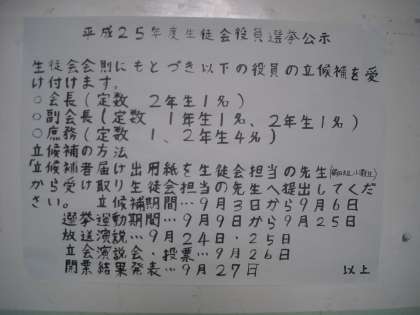 平成25年度生徒会役員選挙公示
生徒会会則にもとづき以下の役員の立候補を受
け付けます。
○会長(定数 2年生1名)
○副会長(定数 1年生1名、2年生1名)
○庶務(定数 1、2年生4名)
立候補の方法
「立候補者届け出用紙を生徒会担当の先生
から受け取り生徒会担当の先生へ提出してくだ
さい。 立候補期間…9月3日から9月6日
選挙運動期間…9月9日から9月25日
放送演説…9月24日・25日
立会演説会・投票…9月26日
開票結果発表…9月27日 以上